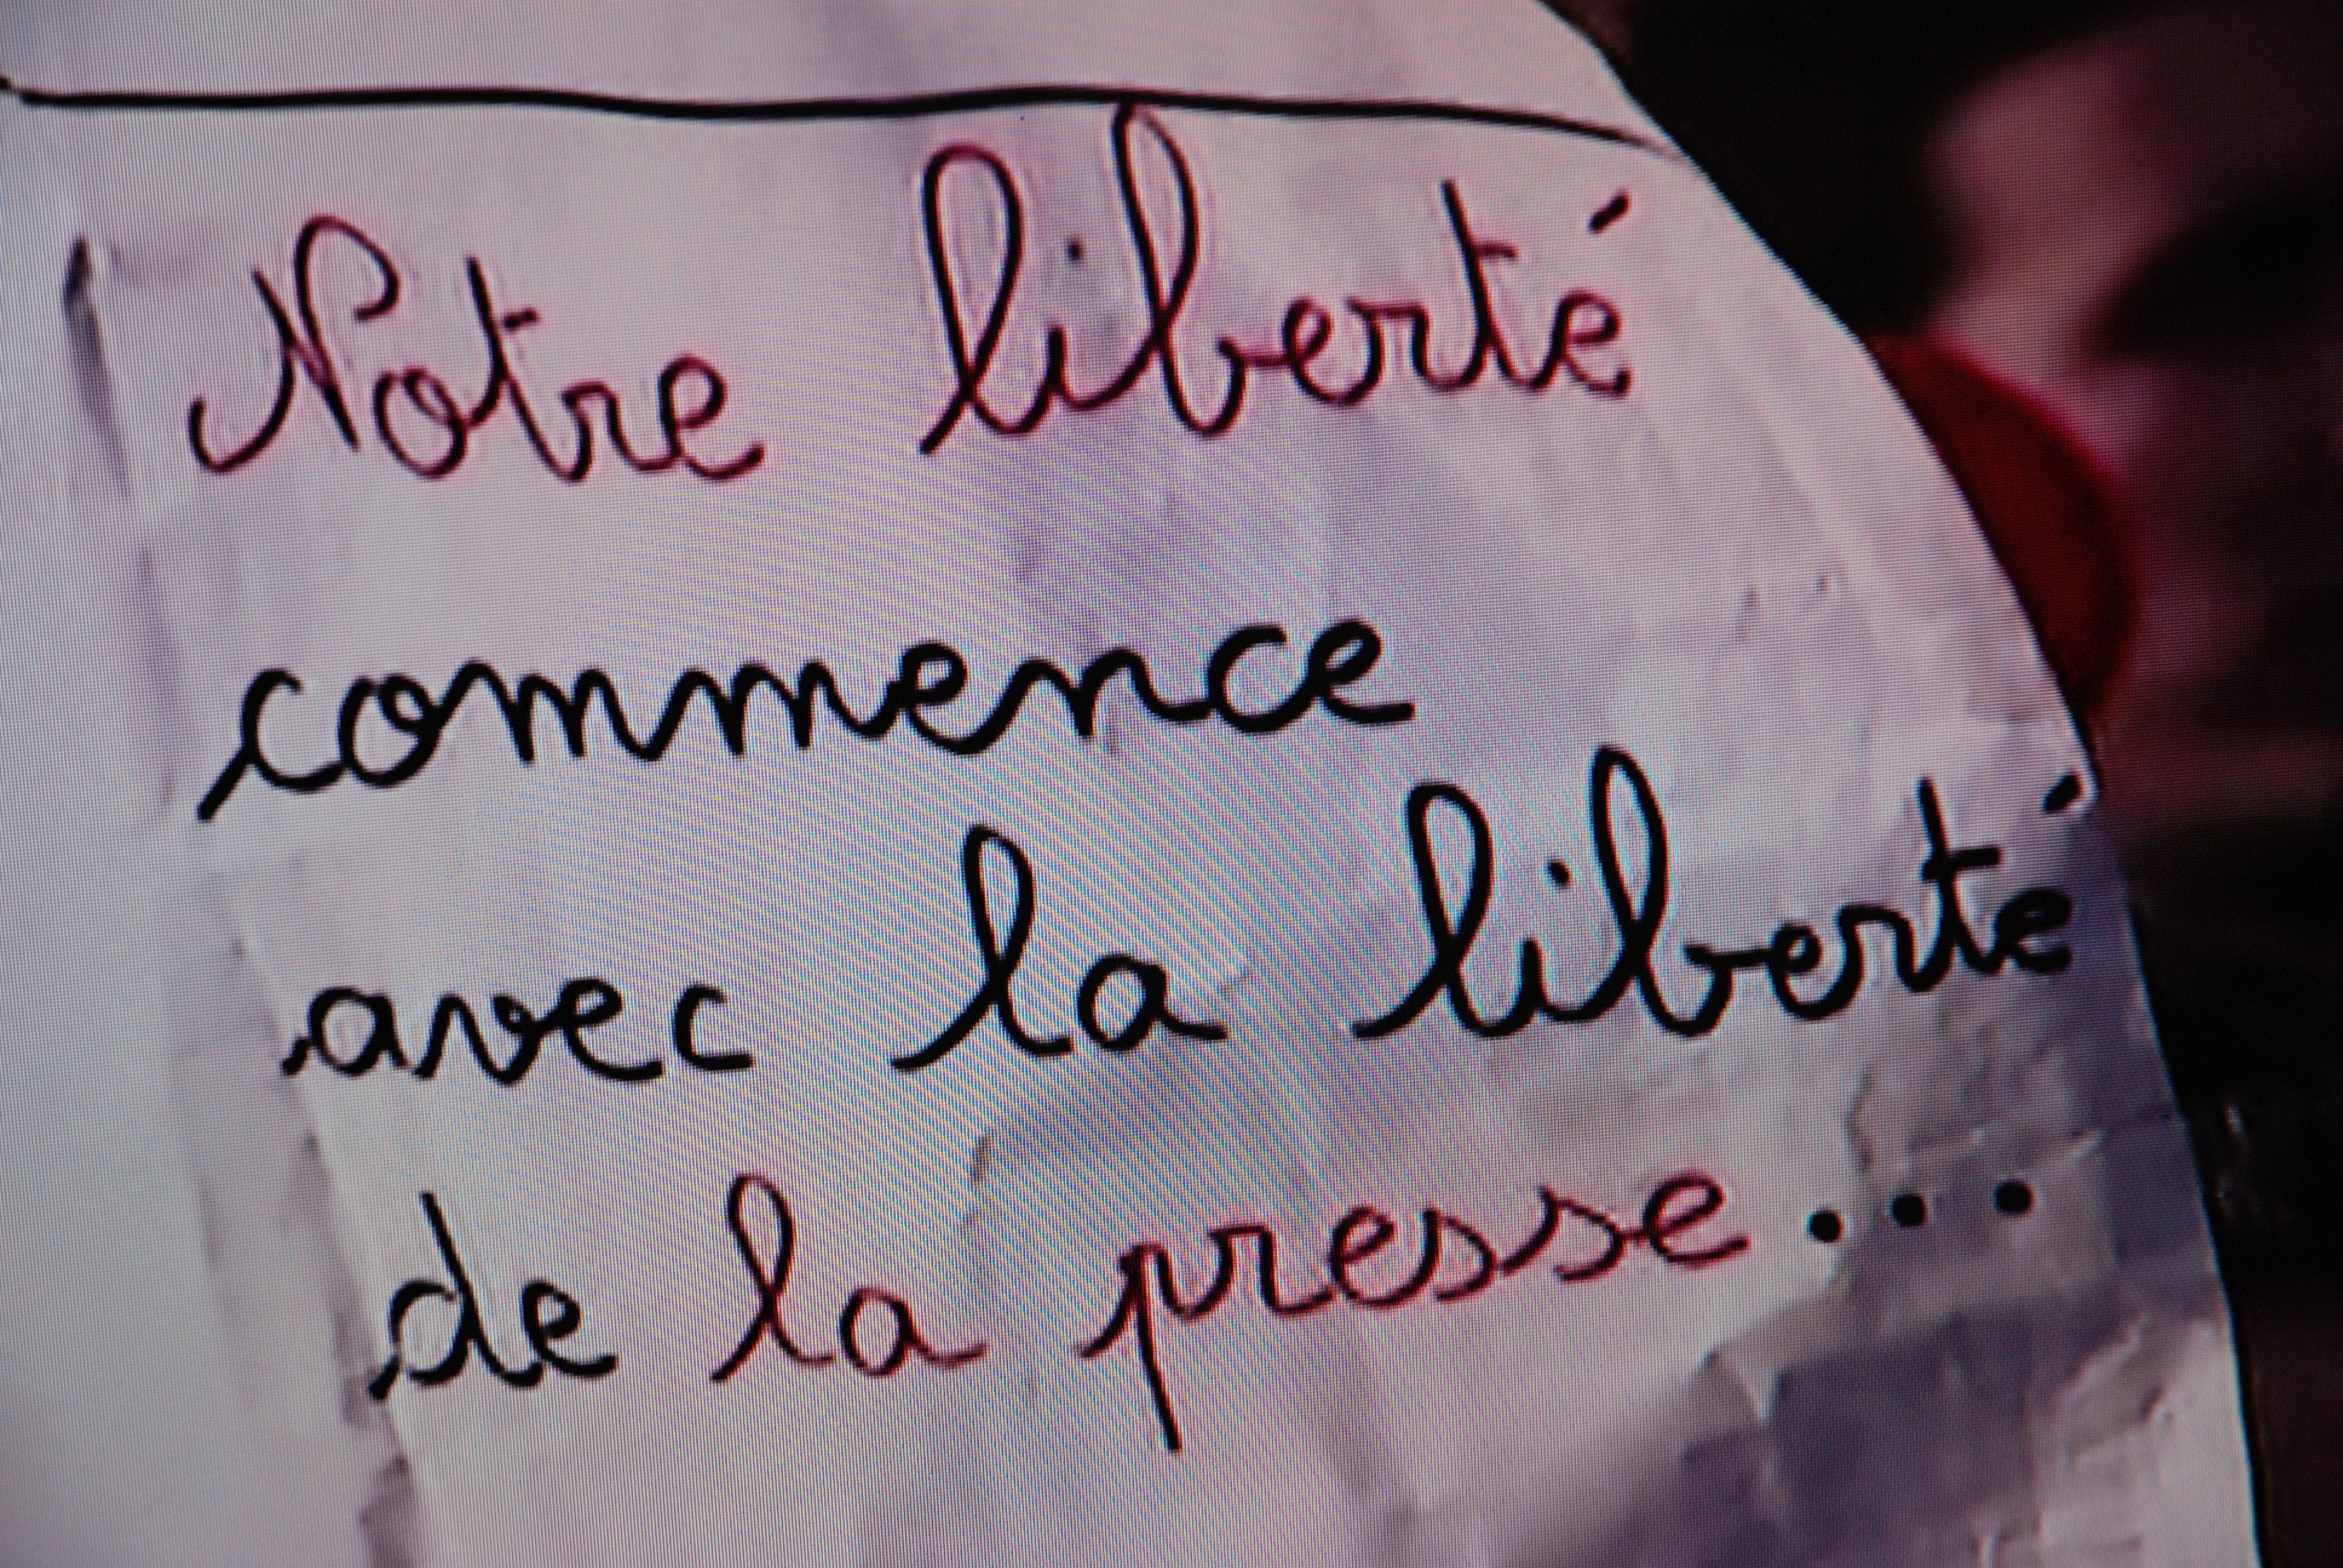 Notre liberté
commence
avec la liberté
de la presse...